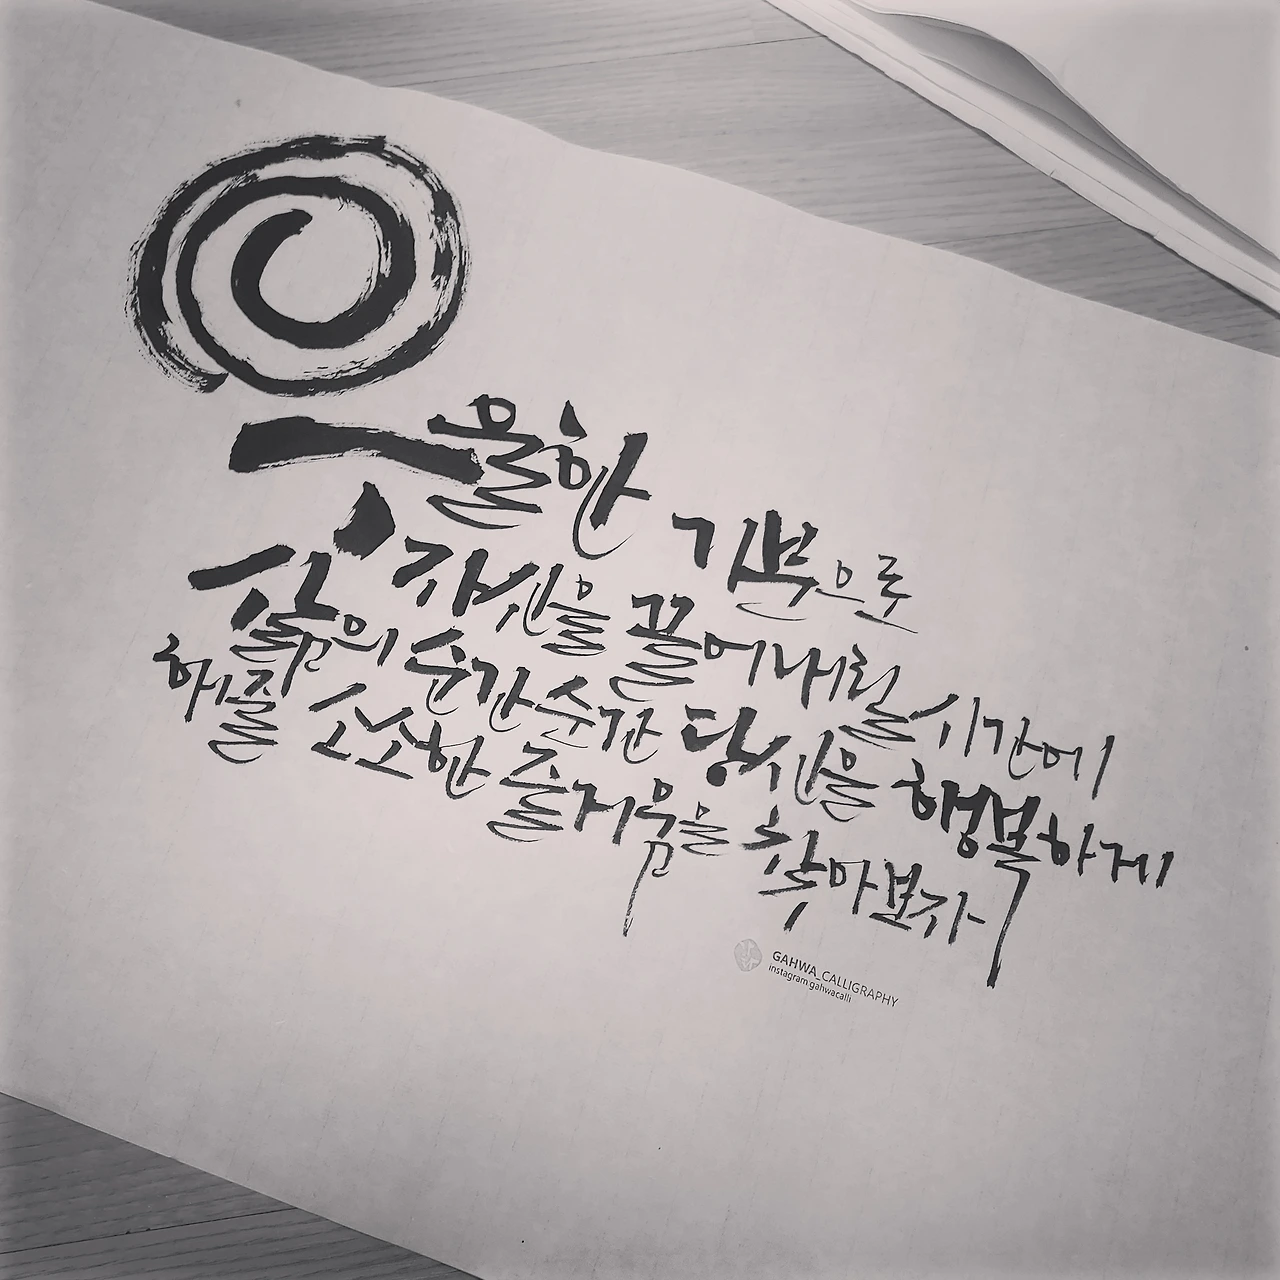 우울한 기분으로
자신을 끌어내릴 시간에
삶의 순간순간 당신을 행복하게
해줄 소소한 즐거움을 찾아보자
GAHWA_CALLIGRAPHY
instagram.gahwacalli